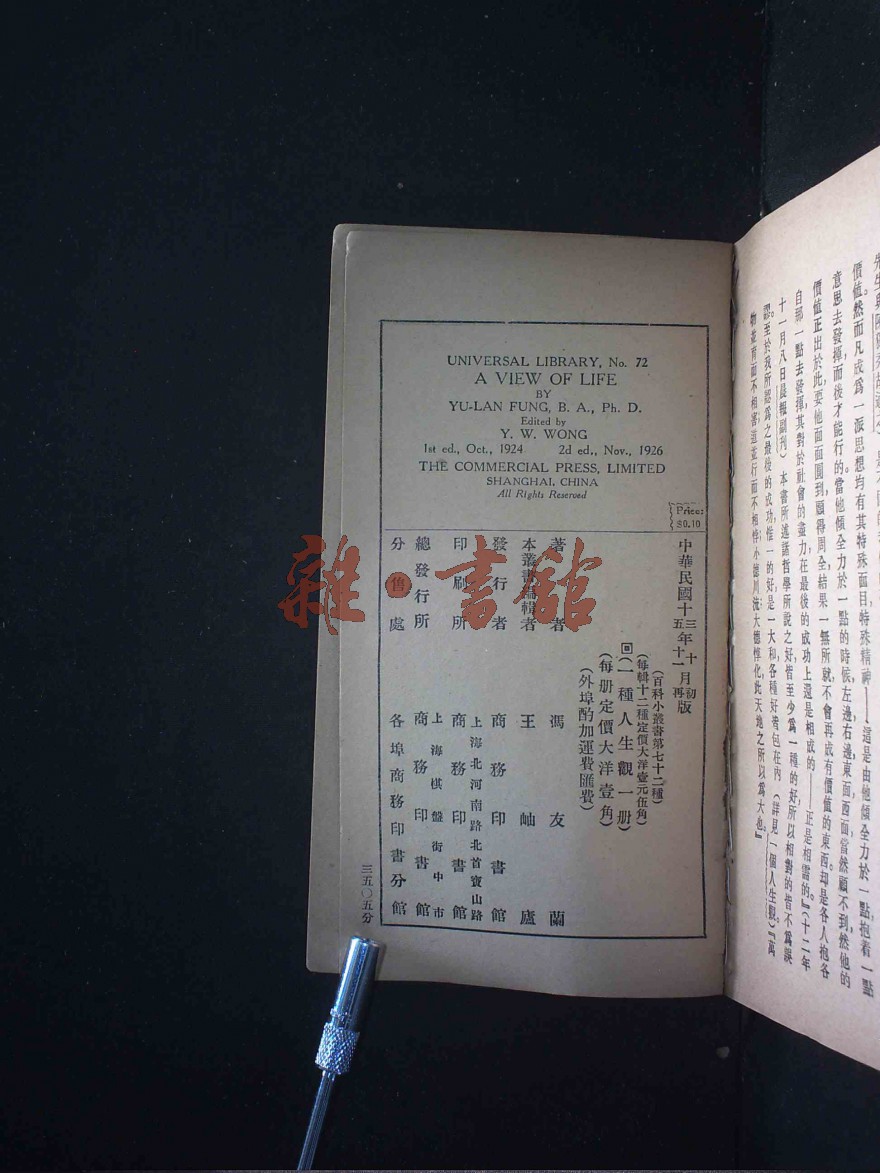 UNIVERSAL LIBRARY, No. 72
A VIEW OF LIFE
BY
YU-LAN FUNG, B. A., Ph. D.
Edited by
Y. W. WONG
1st ed., Oct., 1924 2d ed., Nov., 1926
THE COMMERCIAL PRESS, LIMITED
SHANGHAI, CHINA
All Rights Reserved
Price:
$0.10
中華民國十三年十月初版
五年十一月再版
(百科小叢書第七十二種)
(每輯十二種定價大洋壹元伍角)
回(一種人生觀一册)
(每册定價大洋壹角)
(外埠酌加運費匯費)
著者 馮友蘭
本叢書編輯者 王岫廬
發行者 商務印書館
印刷所 上海北河南路北首寶山路
商務印書館
總發行所 上海棋盤街中市
商務印書館
分售處 各埠商務印書分館
三五〇五分
雜·書館
價值。然而凡成爲一派思想均有其特殊面目,特殊精神——這是由他傾全力於一點,抱着一點
意思去發揮,而後才能行的。當他傾全力於一點的時候,左邊右邊,東面西面,當然顧不到。然他的
價值正出於此,要他面面圓到,顧得周全,結果一無所就,不會再成有價值的東西。却是各人抱各
自那一點去發揮,其對於社會的盡力,在最後的成功上還是相成的——正是相需的。』(十二年
十一月八日晨報副刊)本書所述諸哲學所說之好,皆至少爲一種的好,所以相對的皆不爲誤
認。至於我所認爲之最後的成功,惟一的好,是一大和,各種好皆包在內(詳見一個人生觀)。『萬
物並育而不相害,道並行而不相悖,小德川流,大德惇化,此天地之所以爲大也。』